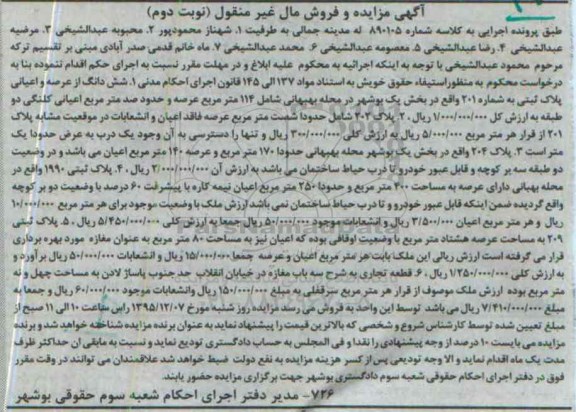 آگهی مزایده و فروش مال غیر منقول (نوبت دوم)
طبق پرونده اجرایی به کلاسه شماره ۸۹۰۱۰۵ له مدینه جمالی به طرفیت ۱. شهناز محمودپور ۲. محبوبه عبدالشیخی ۳. مرضیه
عبدالشیخی ۴. رضا عبدالشیخی ۵. معصومه عبدالشیخی ۶. محمد عبدالشیخی ۷. ماه خانم قدمی صدر آبادی مبنی بر تقسیم ترکه
مرحوم محمود عبدالشیخی با توجه به اینکه اجرائیه به محکوم علیه ابلاغ و در مهلت مقرر نسبت به اجرای حکم اقدام ننموده بنا به
درخواست محکوم به منظور استیفاء حقوق خویش به استناد مواد ۱۳۷ الی ۱۴۵ قانون اجرای احکام مدنی ۱. شش دانگ از عرصه و اعیانی
پلاک ثبتی به شماره ۲۰۱ واقع در بخش یک بوشهر در محله بهبهانی شامل ۱۱۴ متر مربع عرصه و حدود صد متر مربع اعیانی کلنگی دو
طبقه به ارزش کل ۱/۰۰۰/۰۰۰/۰۰۰ ریال. ۲. پلاک ۲۰۲ شامل حدودا شصت متر مربع عرصه فاقد اعیان و انشعابات در موقعیت مشابه پلاک
۲۰۱ از قرار هر متر مربع ۵/۰۰۰/۰۰۰ ریال به ارزش کلی ۳۰۰/۰۰۰/۰۰۰ ریال و تنها راه دسترسی به آن وجود یک درب به عرض حدودا یک
متر است ۳. پلاک ۲۰۴ واقع در بخش یک بوشهر محله بهبهانی حدودا ۱۷۰ متر مربع و عرصه ۱۴۰ متر مربع اعیان می باشد و در وضعیت
دو طبقه سه بر کوچه و قابل عبور خودرو تا درب حیاط ساختمان می باشد به ارزش آن ۲/۰۰۰/۰۰۰/۰۰۰ ریال. ۴. پلاک ثبتی ۱۹۹۰ واقع در
محله بهبانی دارای عرصه به مساحت ۲۰۰ متر مربع و حدودا ۲۵۰ متر مربع اعیان نیمه کاره با پیشرفت ۶۰ درصد با وضعیت دو بر کوچه
واقع گردیده ضمن اینکه قابل عبور خودرو و تا درب حیاط ساختمان نمی باشد ارزش ملک با وضعیت موجود برای هر متر مربع ۱۰/۰۰۰/۰۰۰
ریال و هر متر مربع اعیان ۳/۵۰۰/۰۰۰ ریال و انشعابات موجود ۵۰/۰۰۰/۰۰۰ ریال جمعا به ارزش کلی ۵/۴۵۰/۰۰۰/۰۰۰ ریال. ۵. پلاک ثبتی
۲۰۹ به مساحت عرصه هشتاد متر مربع با وضعیت اوقافی بوده که اعیان نیز به مساحت ۸۰ متر مربع به عنوان مغازه مورد بهره برداری
قرار می گرفته است ارزش ریالی این ملک بابت هر متر مربع اعیان و عرصه جمعا ۱۵/۰۰۰/۰۰۰ ریال و انشعابات ۵۰/۰۰۰/۰۰۰ ریال برآورد و
به ارزش کلی ۱/۲۵۰/۰۰۰/۰۰۰ ریال. ۶. قطعه تجاری به شرح سه باب مغازه در خیابان انقلاب جد جنوب پاساژ لادن به مساحت چهل و نه
متر مربع بوده ارزش ملک موصوف از قرار هر متر مربع سرقفلی به مبلغ ۱۵۰/۰۰۰/۰۰۰ ریال و انشعابات موجود ۶۰/۰۰۰/۰۰۰ ریال و جمعا به
مبلغ ۷/۴۱۰/۰۰۰/۰۰۰ ریال می باشد توسط این واحد به فروش می رسد مزایده روز شنبه مورخ ۱۳۹۵/۱۲/۰۷ راس ساعت ۱۰ الی ۱۱ صبح از
مبلغ تعیین شده توسط کارشناس شروع و شخصی که بالاترین قیمت را پیشنهاد نماید به عنوان برنده مزایده شناخته خواهد شد و برنده
مزایده می بایست ۱۰ درصد از وجه پیشنهادی را نقدا و فی المجلس به حساب دادگستری تودیع نماید و نسبت به مابقی آن حداکثر ظرف
مدت یک ماه اقدام نماید و الا وجه تودیعی پس از کسر هزینه مزایده به نفع دولت ضبط خواهد شد علاقمندان می توانند در وقت مقرر
فوق در دفتر اجرای احکام حقوقی شعبه سوم دادگستری بوشهر جهت برگزاری مزایده حضور یابند.
۷۲۶- مدیر دفتر اجرای احکام شعبه سوم حقوقی بوشهر